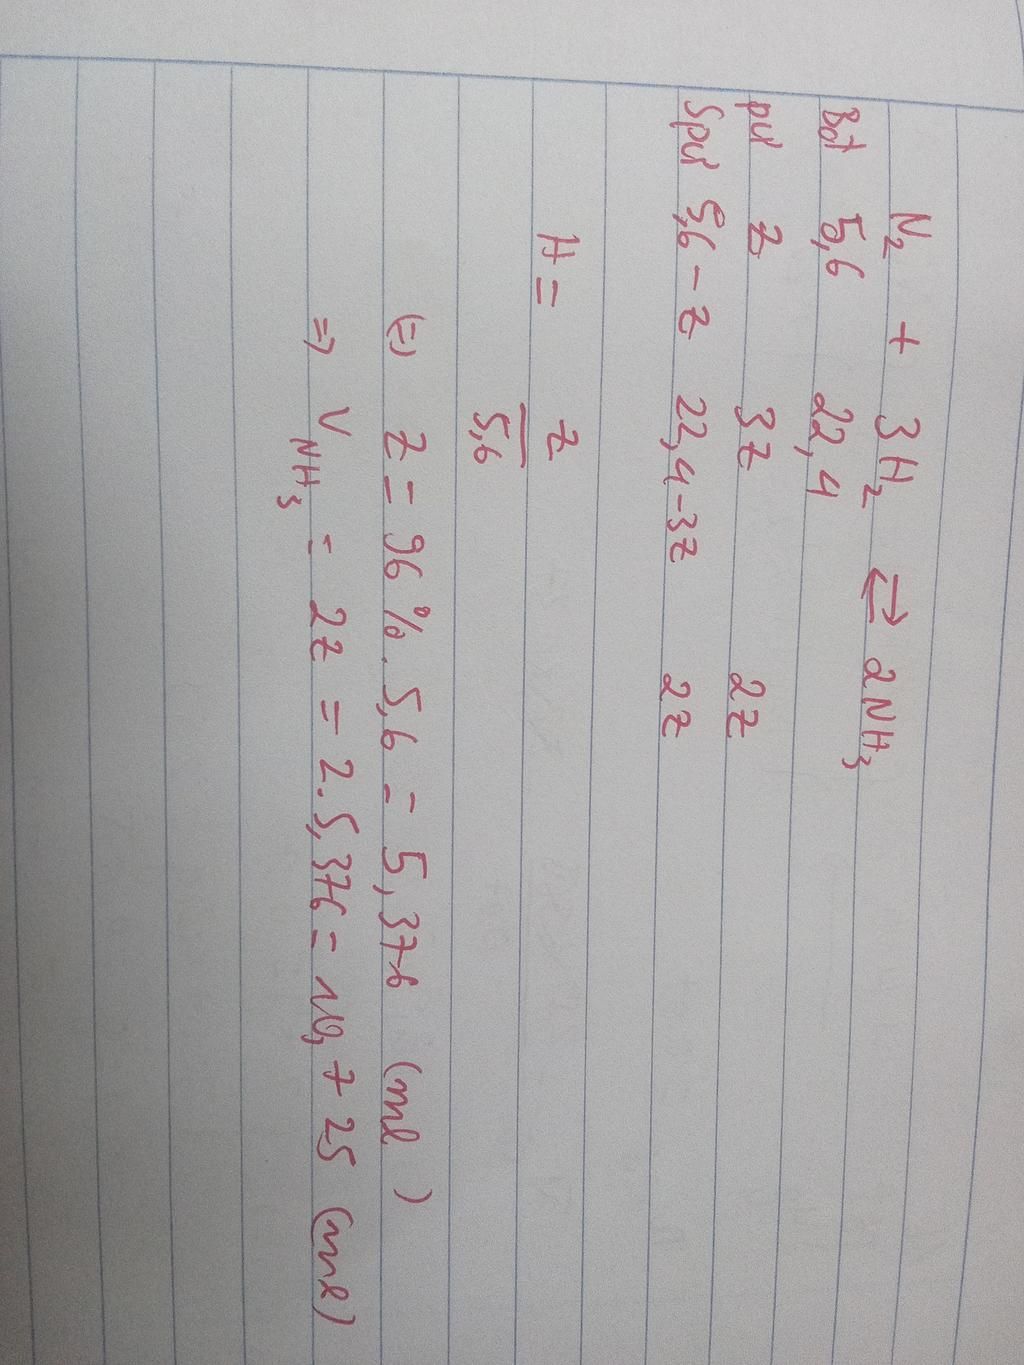 N₂ + 3H₂ ⇄ 2NH₃
Bđ 5,6 22,4
pư z 3z 2z
Spư 5,6 - z 22,4-3z 2z
H = z/5,6
(=) z = 96%. 5,6 = 5,376 (ml)
=> V NH₃ = 2z = 2.5,376 = 10,725 (ml)